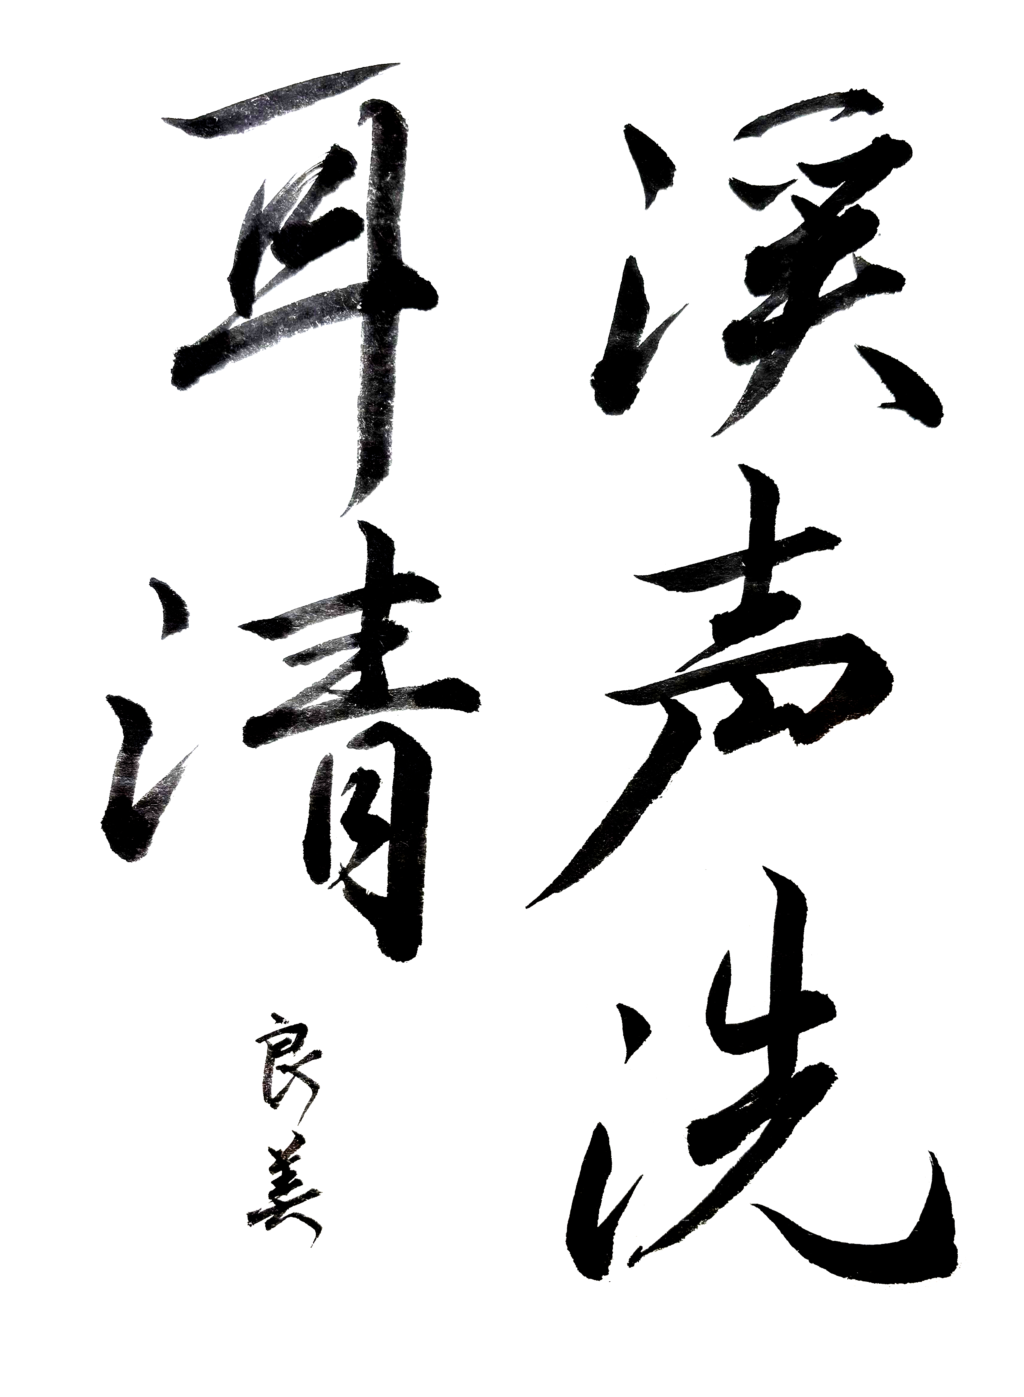 溪声洗
耳清
良美